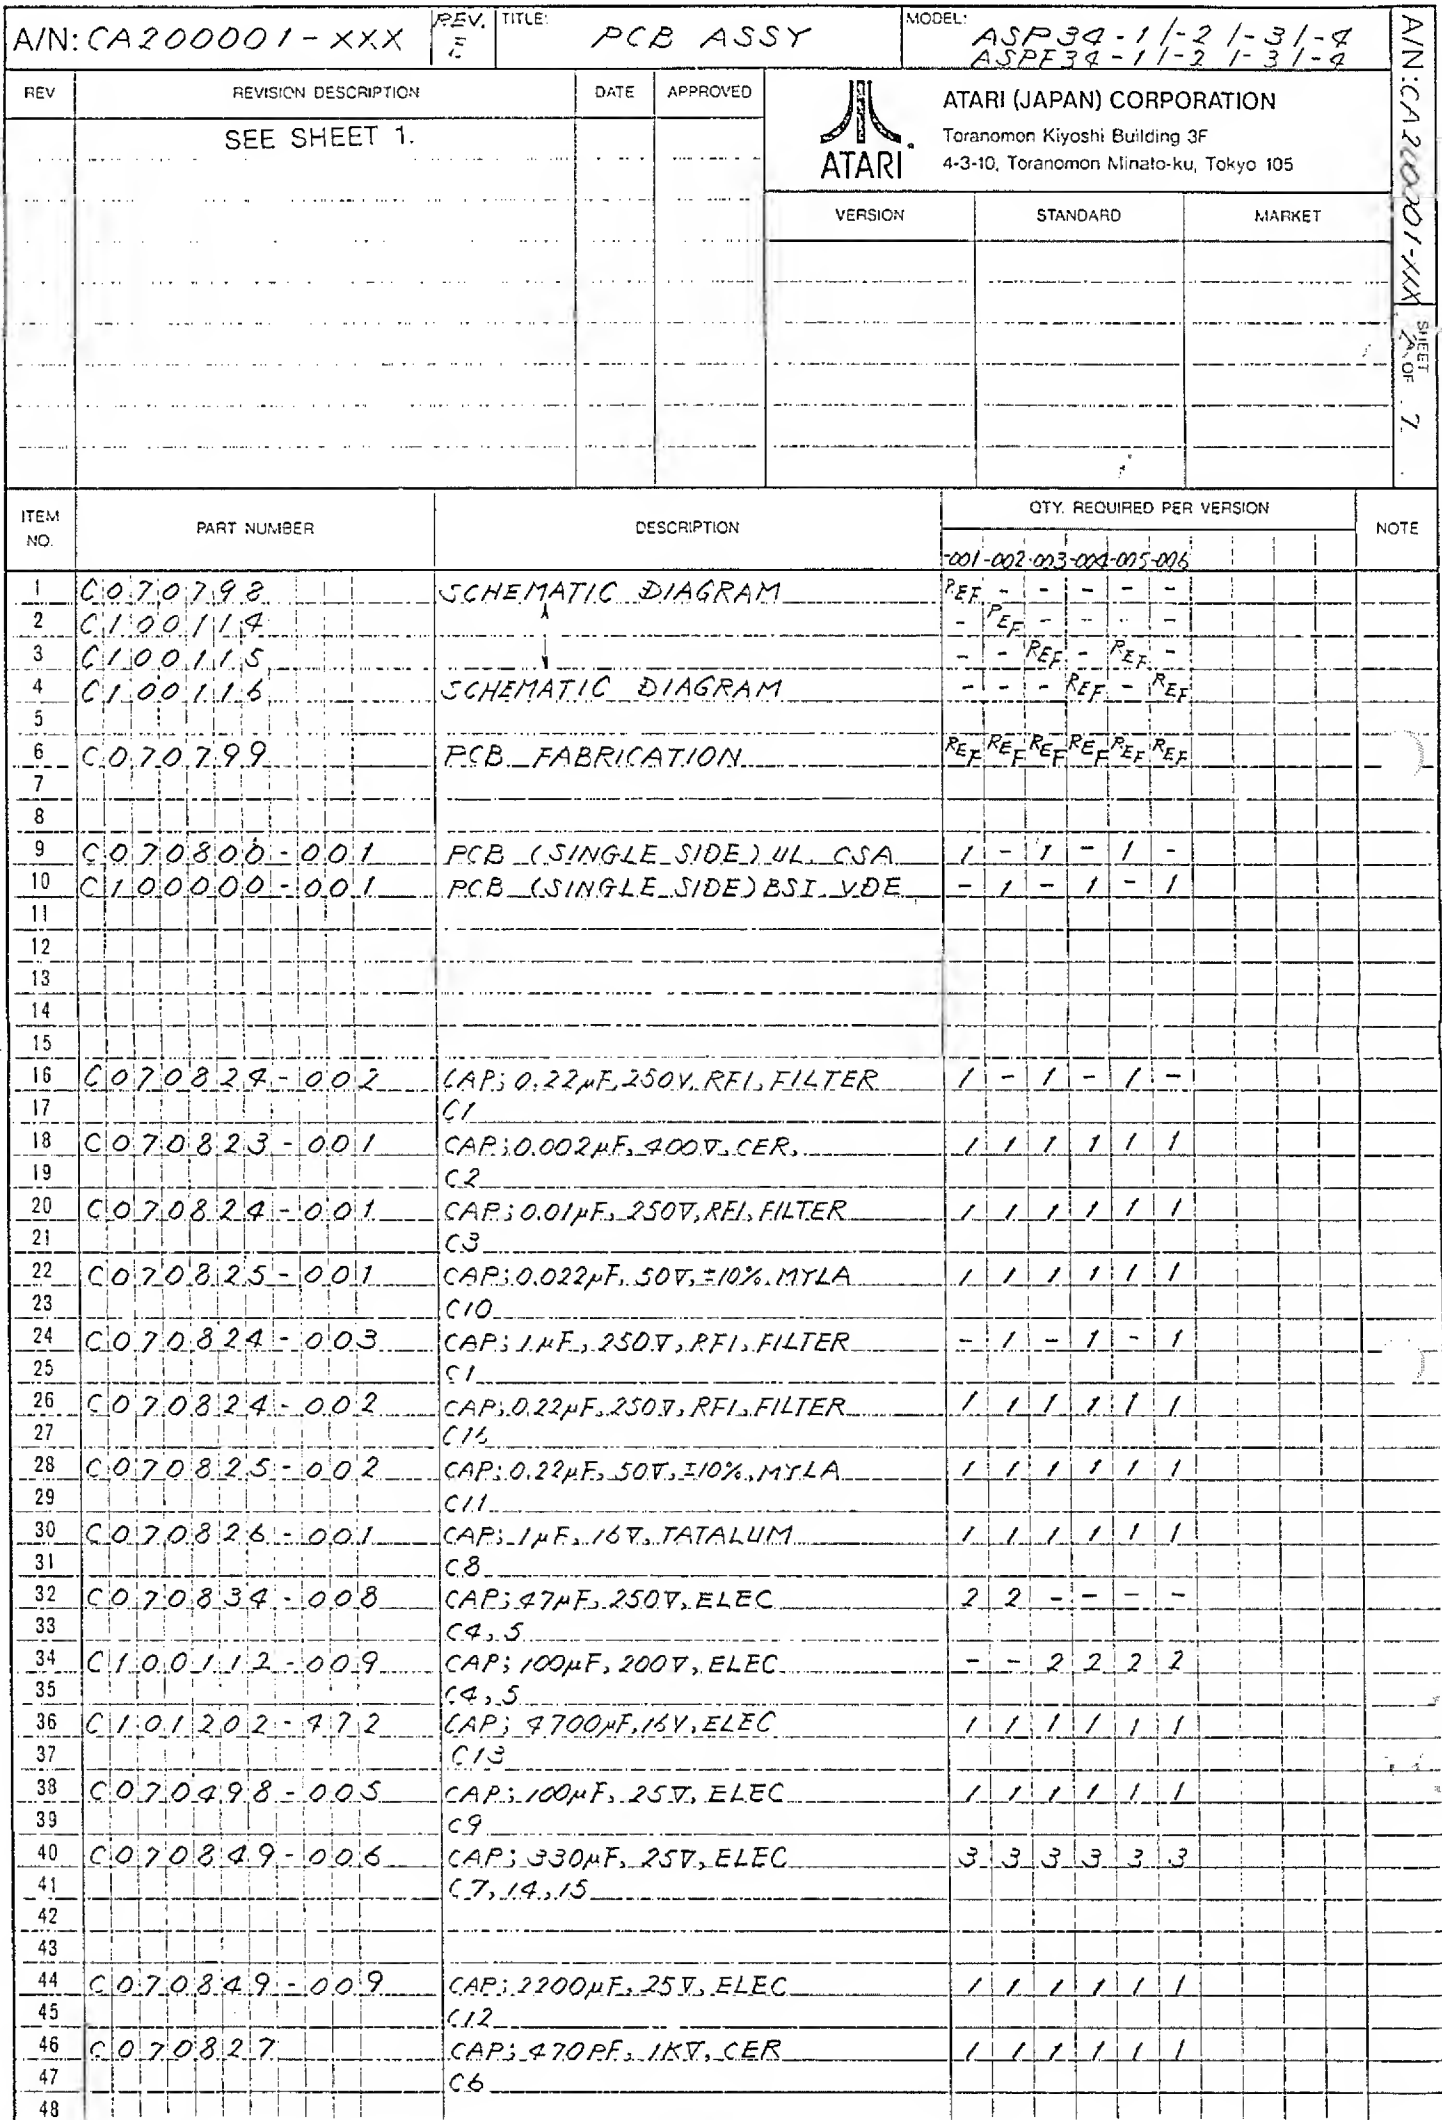 A/N: CA200001-XXX REV. E TITLE: PCB ASSY MODEL: ASP34-1/-2/-3/-4
ASPF34-1/-2/-3/-4
REV REVISION DESCRIPTION DATE APPROVED
SEE SHEET 1.
ATARI
ATARI (JAPAN) CORPORATION
Toranomon Kiyoshi Building 3F
4-3-10, Toranomon Minato-ku, Tokyo 105
VERSION STANDARD MARKET
A/N: CA200001-XXX SHEET 2 OF 7.
ITEM NO. PART NUMBER DESCRIPTION QTY. REQUIRED PER VERSION NOTE
-001 -002 -003 -004 -005 -006
1 C070798 SCHEMATIC DIAGRAM REF - - - - -
2 C100114 - REF - - - -
3 C100115 - - REF - REF -
4 C100116 SCHEMATIC DIAGRAM - - - REF - REF
5
6 C070799 PCB FABRICATION REF REF REF REF REF REF
7
8
9 C070800-001 PCB (SINGLE SIDE) UL. CSA 1 - 1 - 1 -
10 C100000-001 PCB (SINGLE SIDE) BSI. VDE - 1 - 1 - 1
11
12
13
14
15
16 C070824-002 CAP; 0.22μF, 250V. RFI, FILTER 1 - 1 - 1 -
17 C1
18 C070823-001 CAP; 0.002μF, 400V, CER, 1 1 1 1 1 1
19 C2
20 C070824-001 CAP; 0.01μF, 250V, RFI, FILTER 1 1 1 1 1 1
21 C3
22 C070825-001 CAP; 0.022μF, 50V, ±10%, MYLA 1 1 1 1 1 1
23 C10
24 C070824-003 CAP; 1μF, 250V, RFI, FILTER - 1 - 1 - 1
25 C1
26 C070824-002 CAP; 0.22μF, 250V, RFI, FILTER 1 1 1 1 1 1
27 C16
28 C070825-002 CAP; 0.22μF, 50V, ±10%, MYLA 1 1 1 1 1 1
29 C11
30 C070826-001 CAP; 1μF, 16V, TATALUM 1 1 1 1 1 1
31 C8
32 C070834-008 CAP; 47μF, 250V, ELEC 2 2 - - - -
33 C4, 5
34 C100112-009 CAP; 100μF, 200V, ELEC - - 2 2 2 2
35 C4, 5
36 C101202-472 CAP; 4700μF, 16V, ELEC 1 1 1 1 1 1
37 C13
38 C070498-005 CAP; 100μF, 25V, ELEC 1 1 1 1 1 1
39 C9
40 C070849-006 CAP; 330μF, 25V, ELEC 3 3 3 3 3 3
41 C7, 14, 15
42
43
44 C070849-009 CAP; 2200μF, 25V, ELEC 1 1 1 1 1 1
45 C12
46 C070827 CAP; 470PF, 1KV, CER 1 1 1 1 1 1
47 C6
48